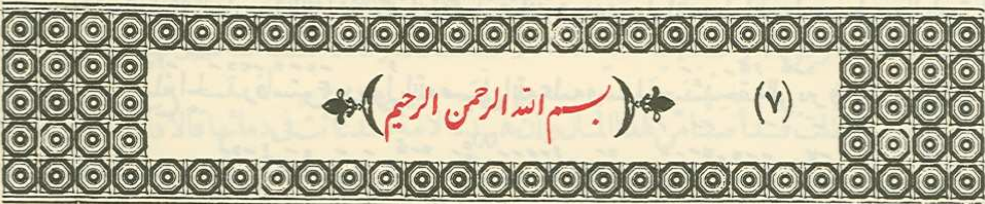 (٧)
(بسم الله الرحمن الرحيم)